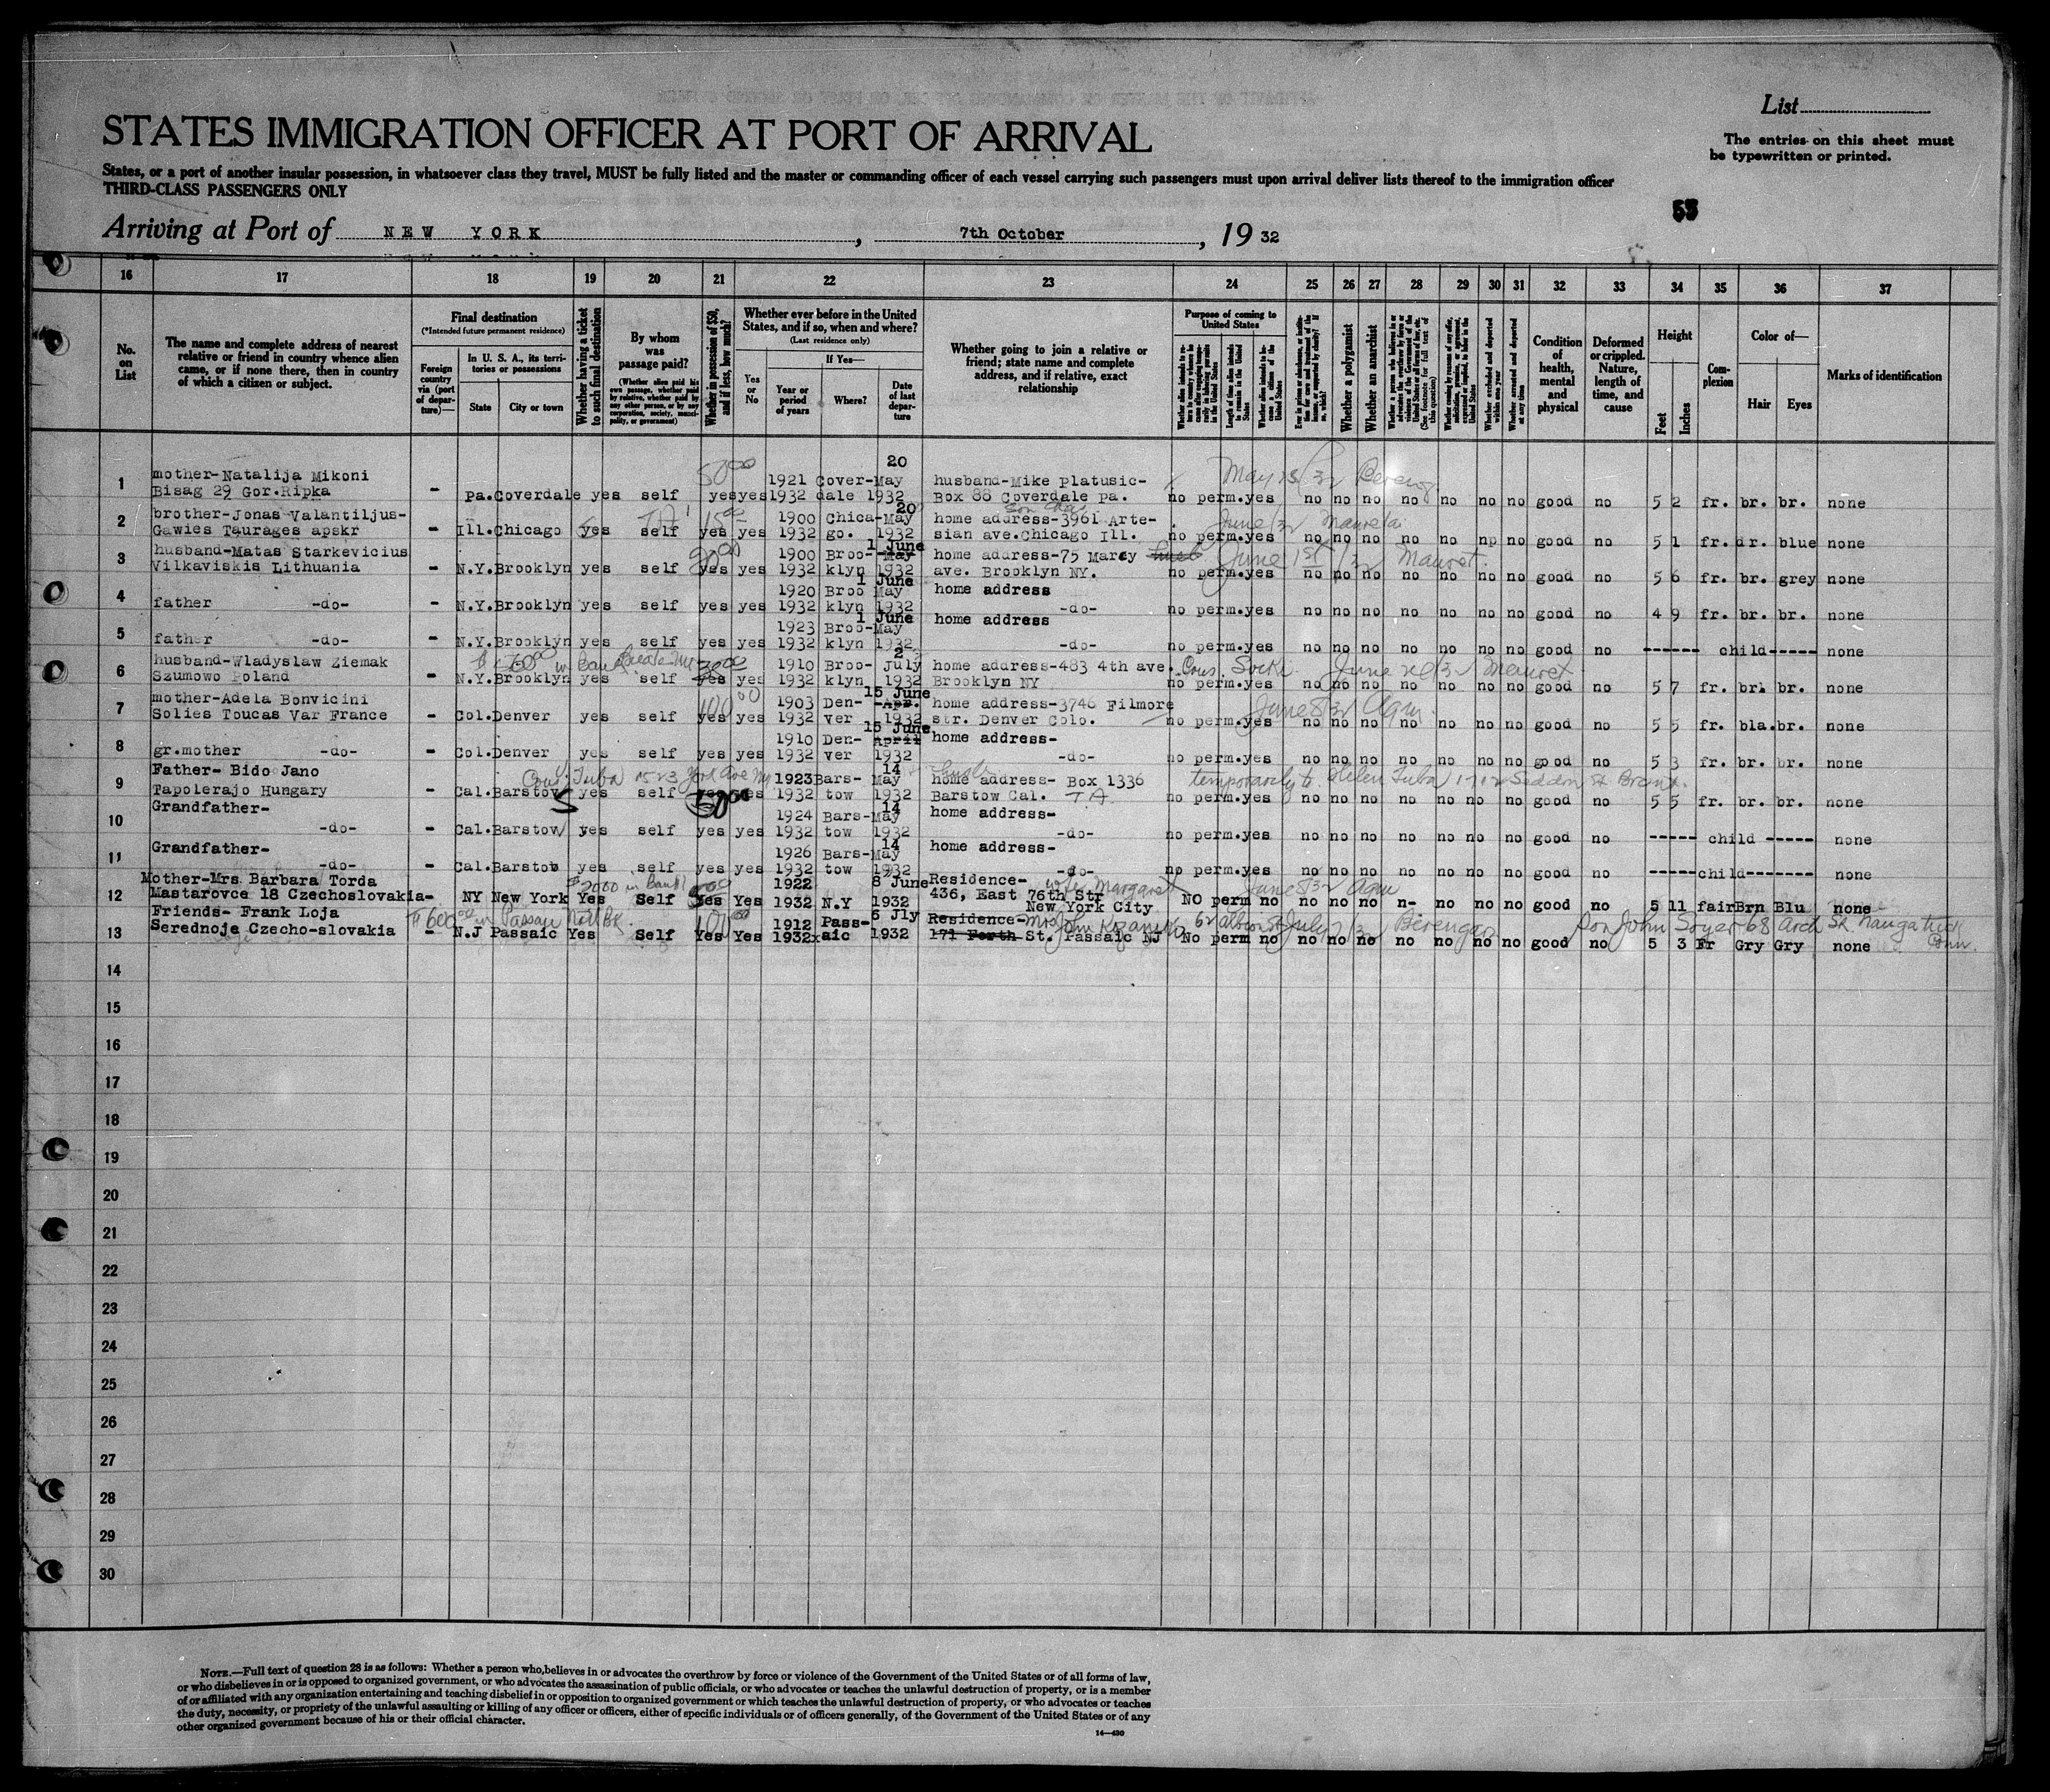 List
STATES IMMIGRATION OFFICER AT PORT OF ARRIVAL
The entries on this sheet must
be typewritten or printed.
States, or a port of another insular possession, in whatsoever class they travel, MUST be fully listed and the master or commanding officer of each vessel carrying such passengers must upon arrival deliver lists thereof to the immigration officer
THIRD-CLASS PASSENGERS ONLY
53
Arriving at Port of NEW YORK, 7th October, 19 32
16 17 18 19 20 21 22 23 24 25 26 27 28 29 30 31 32 33 34 35 36 37
No. on List
The name and complete address of nearest relative or friend in country whence alien came, or if none there, then in country of which a citizen or subject.
Final destination
(*Intended future permanent residence)
Foreign country via (port of departure)—
In U. S. A., its territories or possessions
State City or town
Whether having a ticket to such final destination
By whom was passage paid?
(Whether alien paid his own passage, whether paid by relative, whether paid by any other person, or by any corporation, society, municipality, or government)
Whether in possession of $50, and if less, how much?
Whether ever before in the United States, and if so, when and where?
(Last residence only)
Yes or No
If Yes—
Year or period of years
Where?
Date of last departure
Whether going to join a relative or friend; state name and complete address, and if relative, exact relationship
Purpose of coming to United States
Length of time alien intends to remain in the United States
Whether alien intends to become a citizen of the United States
Whether a polygamist
Whether an anarchist
Whether excluded and deported within one year
Whether arrested and deported at any time
Condition of health, mental and physical
Deformed or crippled. Nature, length of time, and cause
Height
Feet Inches
Complexion
Color of—
Hair Eyes
Marks of identification
1 mother-Natalija Mikoni 50 00 1921 Cover-May 20 husband-Mike Platusic- May 25/32
Bisag 29 Gor.Ripka - Pa.Coverdale yes self yes yes 1932 dale 1932 Box 88 Coverdale Pa. no perm.yes no no no no no no no good no 5 2 fr. br. br. none
2 brother-Jonas Valantiljus- 15 00 1900 Chica-May 20 home address-3961 Arte- June /32
Gawies Taurages apskr - Ill.Chicago yes self yes yes 1932 go. 1932 sian ave.Chicago Ill. no perm.yes no no no no no no no good no 5 1 fr. dr. blue none
3 husband-Matas Starkevicius 1900 Broo-May 1 June home address-75 Marcy June 1st/32 Mauret.
Vilkaviskis Lithuania - N.Y.Brooklyn yes self yes yes 1932 klyn 1932 ave. Brooklyn NY. no perm.yes no no no no no no no good no 5 6 fr. br. grey none
4 1920 Broo May 1 June home address
father -do- - N.Y.Brooklyn yes self yes yes 1932 klyn 1932 -do- no perm.yes no no no no no no no good no 4 9 fr. br. br. none
5 1923 Broo-May 1 June home address
father -do- - N.Y.Brooklyn yes self yes yes 1932 klyn 1932 -do- no perm.yes no no no no no no no good no ------ child----- none
6 husband-Wladyslaw Ziemak 1910 Broo- July 2 home address-483 4th ave. June /32 Mauret
Szumowo Poland - N.Y.Brooklyn yes self yes yes 1932 klyn 1932 Brooklyn NY no perm.yes no no no no no no no good no 5 7 fr. br. br. none
7 mother-Adela Bonvicini 100 00 1903 Den- Apr. 15 June home address-3746 Filmore June 8/32 Aqu.
Solies Toucas Var France - Col.Denver yes self yes yes 1932 ver 1932 str. Denver Colo. no perm.yes no no no no no no no good no 5 5 fr. bla.br. none
8 1910 Den- April 15 June home address-
gr.mother -do- - Col.Denver yes self yes yes 1932 ver 1932 -do- no perm.yes no no no no no no no good no 5 3 fr. br. br. none
9 Father- Bido Jano 1923 Bars- May 14 home address- Box 1336 temporarily to Helen Tuba
Tapolerajo Hungary - Cal.Barstow yes self 50 00 yes 1932 tow 1932 Barstow Cal. TA no perm.yes no no no no no no no good no 5 5 fr. br. br. none
10 Grandfather- 1924 Bars-May 14 home address-
-do- - Cal.Barstow yes self yes yes 1932 tow 1932 -do- no perm.yes no no no no no no no good no ----- child ----- none
11 Grandfather- 1926 Bars-May 14 home address-
-do- - Cal.Barstow yes self yes yes 1932 tow 1932 -do- no perm.yes no no no no no no no good no -----child------- none
12 Mother-Mrs Barbara Torda $2000 in Bank 1922 8 June Residence- wife Margaret June 8/32 Aqu
Mastarovce 18 Czechoslovakia- NY New York Yes Self Yes Yes 1932 N.Y 1932 436, East 76th Str New York City NO perm no no no no n- no no no good no 5 11 fair Brn Blu none
13 Friends- Frank Loja $600 00 in Passaic Natl Bk. 100 00 1912 Pass- 6 Jly Residence- Mrs John July /32 Son John 68 Arch St. Naugatuck Conn.
Serednoje Czecho-slovakia - N.J Passaic Yes Self Yes Yes 1932 aic 1932 171 Forth St. Passaic NJ No perm no no no no no no no no good no 5 3 Fr Gry Gry none
14
15
16
17
18
19
20
21
22
23
24
25
26
27
28
29
30
NOTE.—Full text of question 28 is as follows: Whether a person who believes in or advocates the overthrow by force or violence of the Government of the United States or of all forms of law,
or who disbelieves in or is opposed to organized government, or who advocates the assassination of public officials, or who advocates or teaches the unlawful destruction of property, or is a member
of or affiliated with any organization entertaining and teaching disbelief in or opposition to organized government or which teaches the unlawful destruction of property, or who advocates or teaches
the duty, necessity, or propriety of the unlawful assaulting or killing of any officer or officers, either of specific individuals or of officers generally, of the Government of the United States or of any
other organized government because of his or their official character.
14—430